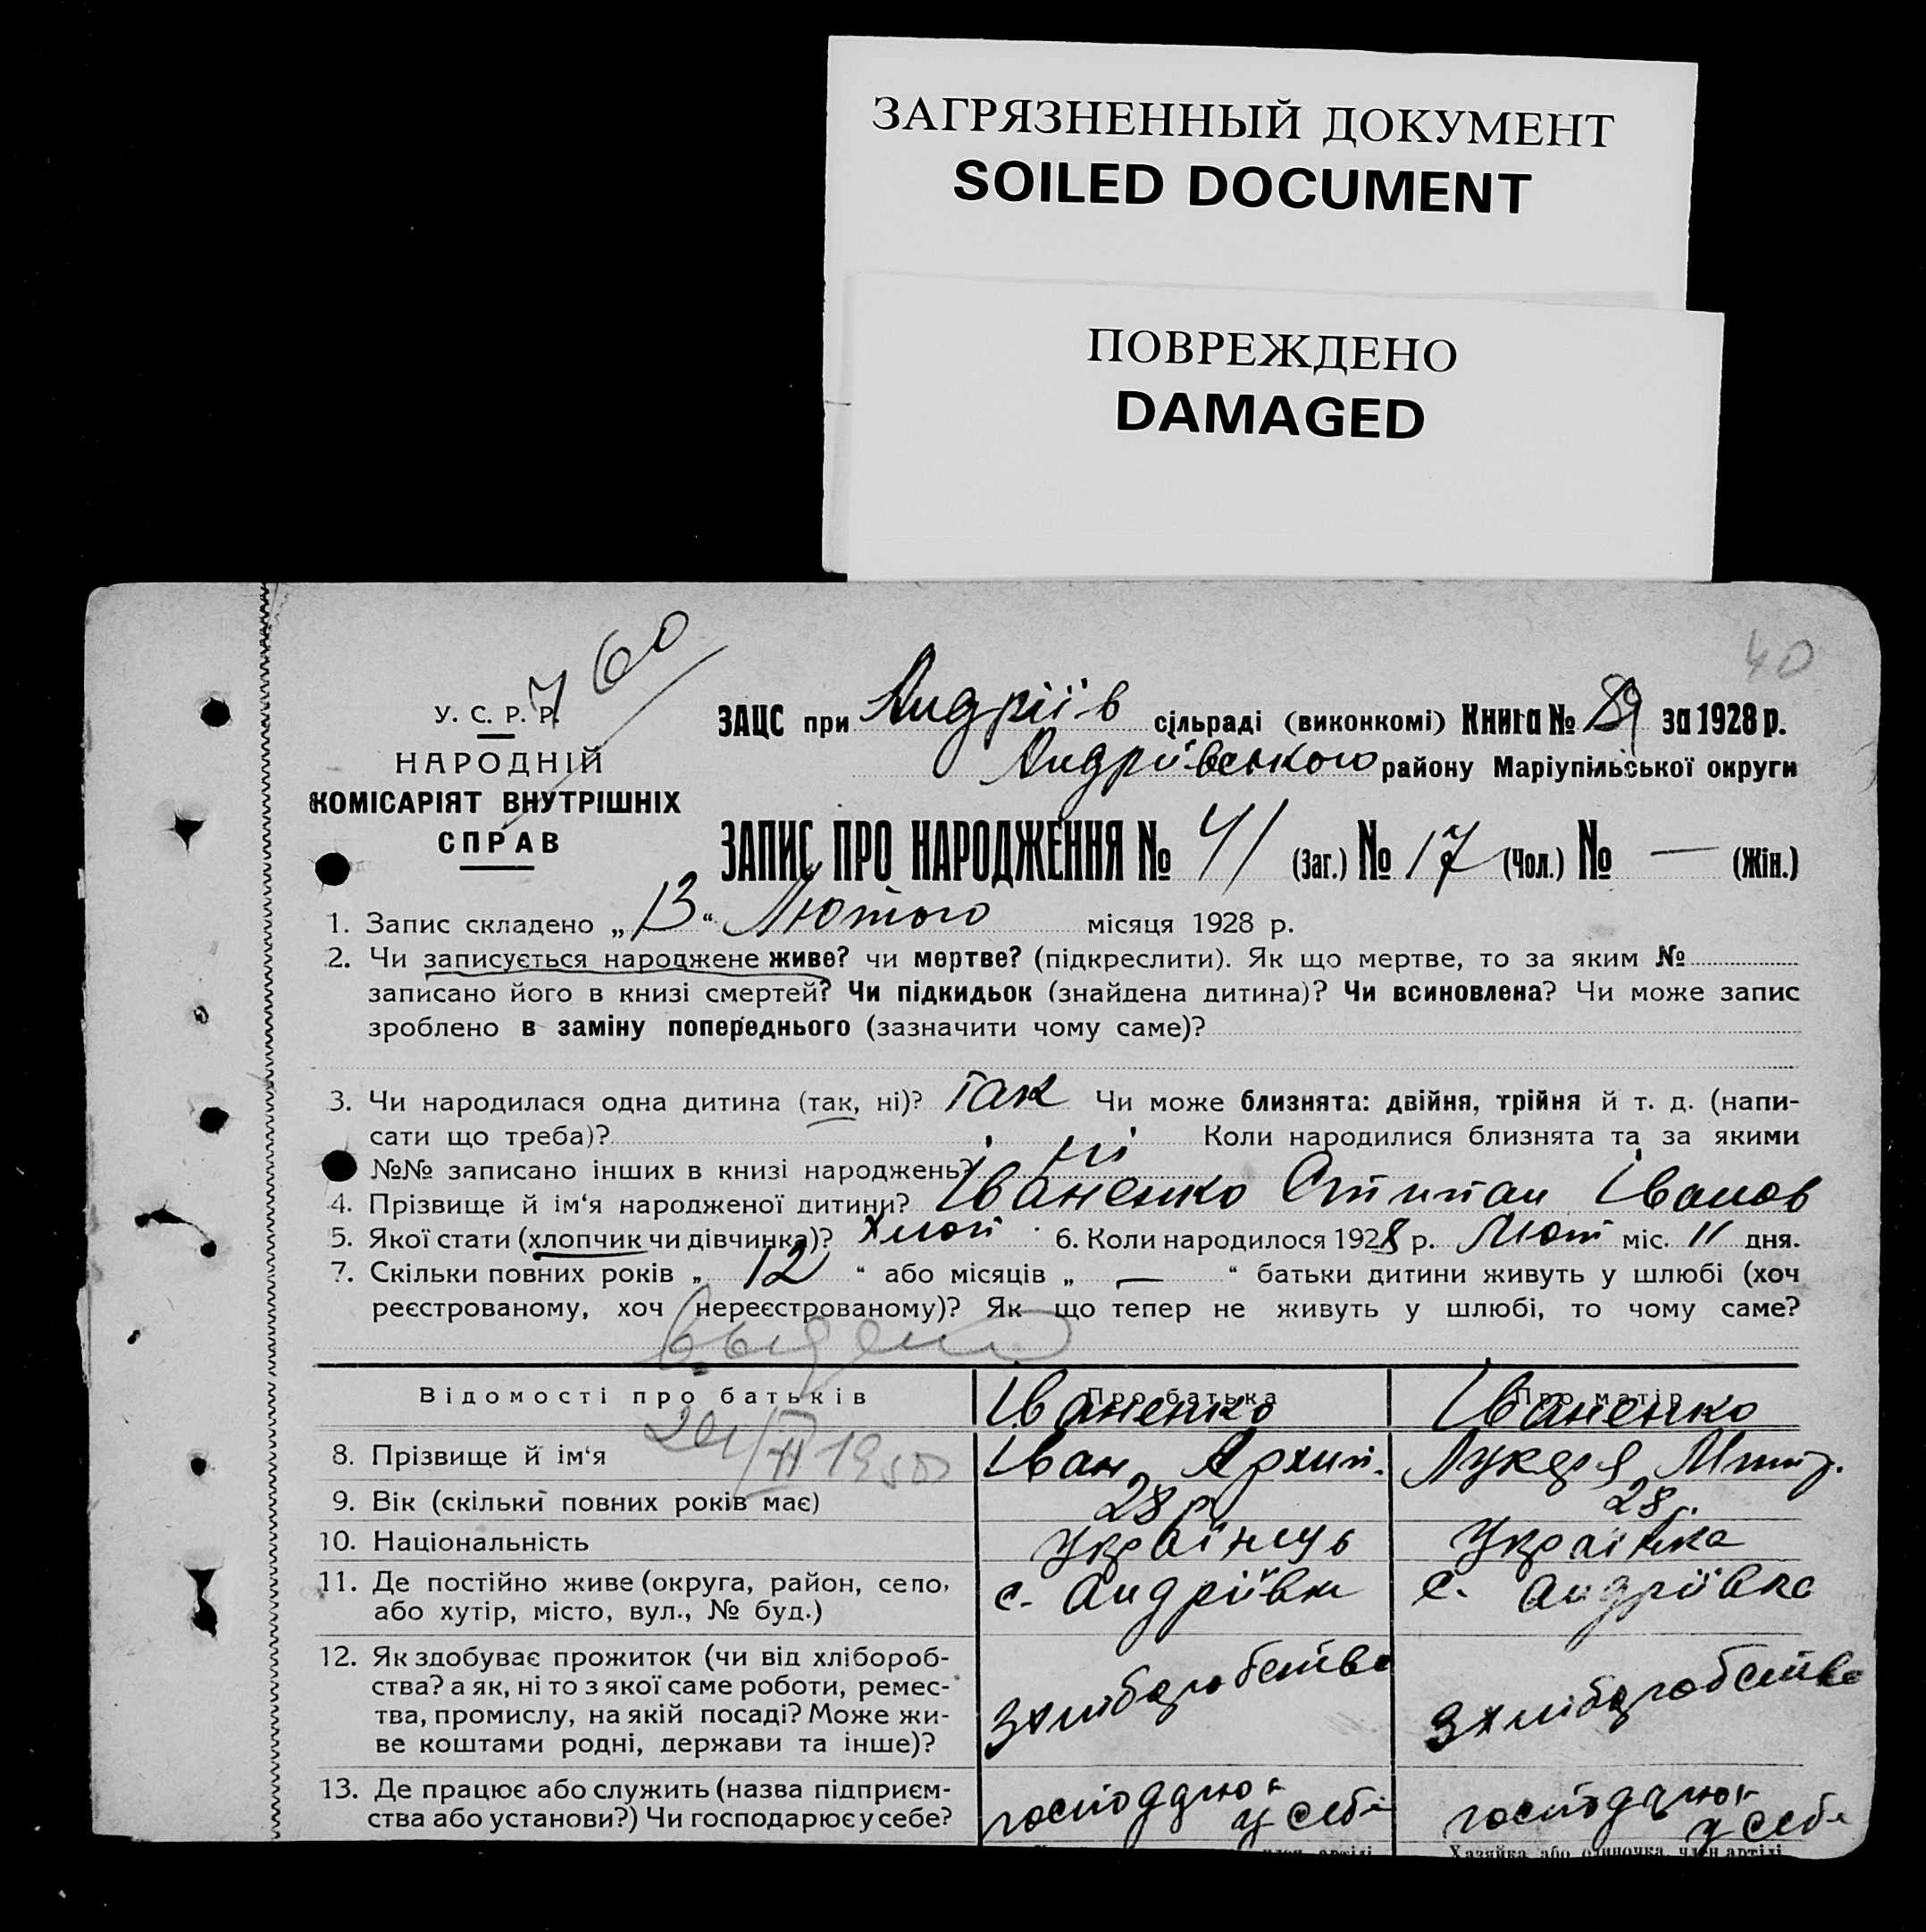 ЗАГРЯЗНЕННЫЙ ДОКУМЕНТ
SOILED DOCUMENT
ПОВРЕЖДЕНО
DAMAGED
760
40
У. С. Р. Р.
НАРОДНІЙ
КОМІСАРІЯТ ВНУТРІШНІХ
СПРАВ
ЗАЦС при Андріїв сільраді (виконкомі) Книга № за 1928 р.
Андріївського району Маріупільської округи
ЗАПИС ПРО НАРОДЖЕННЯ № 41 (Заг.) № 17 (Чол.) № — (Жін.)
1. Запис складено „13“ Лютого місяця 1928 р.
2. Чи записується народжене живе? чи мертве? (підкреслити). Як що мертве, то за яким №
записано його в книзі смертей? Чи підкидьок (знайдена дитина)? Чи всиновлена? Чи може запис
зроблено в заміну попереднього (зазначити чому саме)?
3. Чи народилася одна дитина (так, ні)? Так Чи може близнята: двійня, трійня й т. д. (напи-
сати що треба)? ні Коли народилися близнята та за якими
№№ записано інших в книзі народжень?
4. Прізвище й ім‘я народженої дитини? Іваненко Стипан Іванов
5. Якої стати (хлопчик чи дівчинка)? хлоп 6. Коли народилося 1928 р. Лют міс. 11 дня.
7. Скільки повних років „ 12 “ або місяців „ — “ батьки дитини живуть у шлюбі (хоч
реєстрованому, хоч нереєстрованому)? Як що тепер не живуть у шлюбі, то чому саме?
Выдано
Відомості про батьків Про батька Про матір
Іваненко Іваненко
8. Прізвище й ім‘я Іван Архип. Лукеря Митр.
9. Вік (скільки повних років має) 28 р. 28 р.
10. Національність Українць Украінка
11. Де постійно живе (округа, район, село, с. Андріївки с. Андріївка
або хутір, місто, вул., № буд.)
12. Як здобуває прожиток (чи від хлібороб-
ства? а як, ні то з якої саме роботи, ремес- з хліборобства з хліборобства
тва, промислу, на якій посаді? Може жи-
ве коштами родні, держави та інше)?
13. Де працює або служить (назва підприєм-
ства або установи?) Чи господарює у себе?
у себе у себе
Хазяйка або одиночка, член артілі